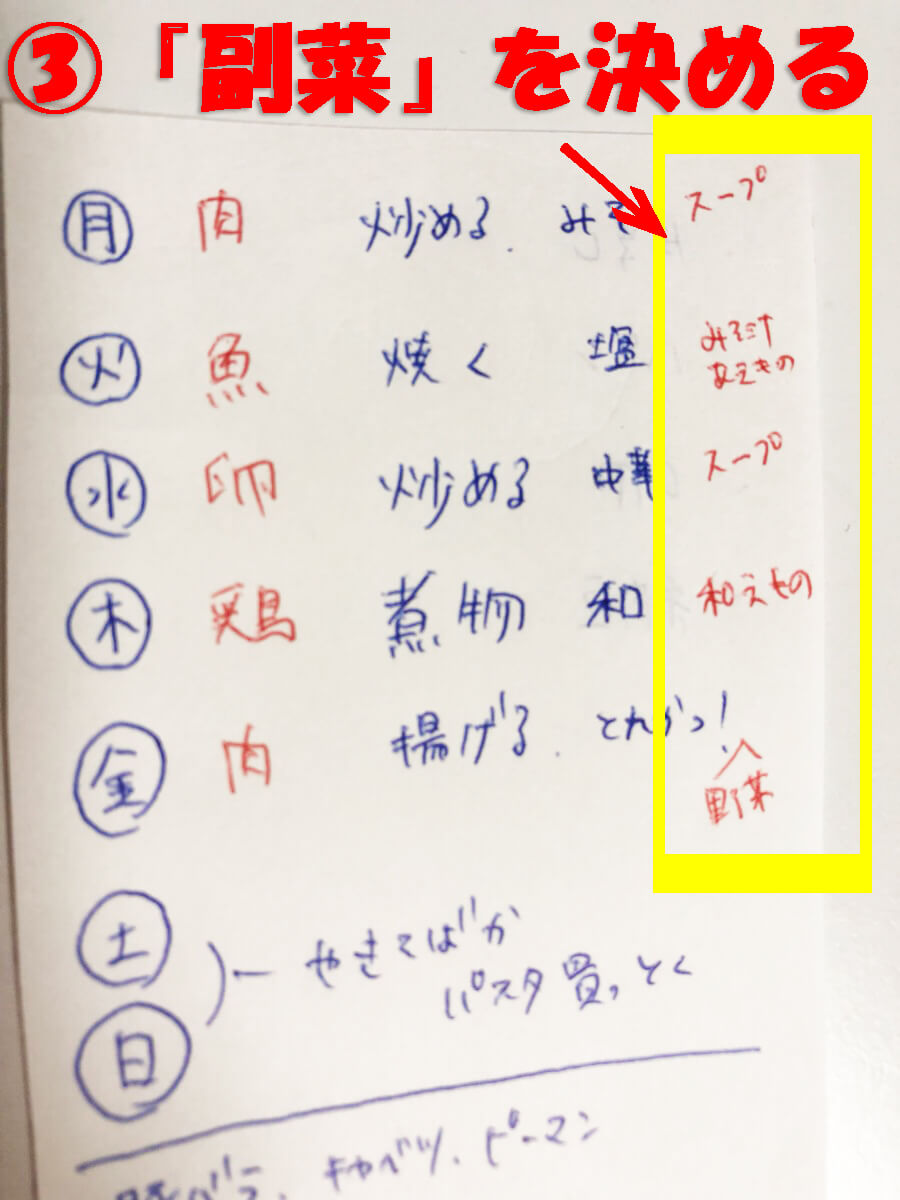 ③『副菜』を決める
月 肉 炒める. みそ スープ
火 魚 焼く 塩 みそ汁
あえもの
水 卵 炒める 中華 スープ
木 鶏 煮物 和 和えもの
金 肉 揚げる. とんかつ!
野菜
土 やきそばか
日 パスタ買っとく
豚バラ、キャベツ、ピーマン